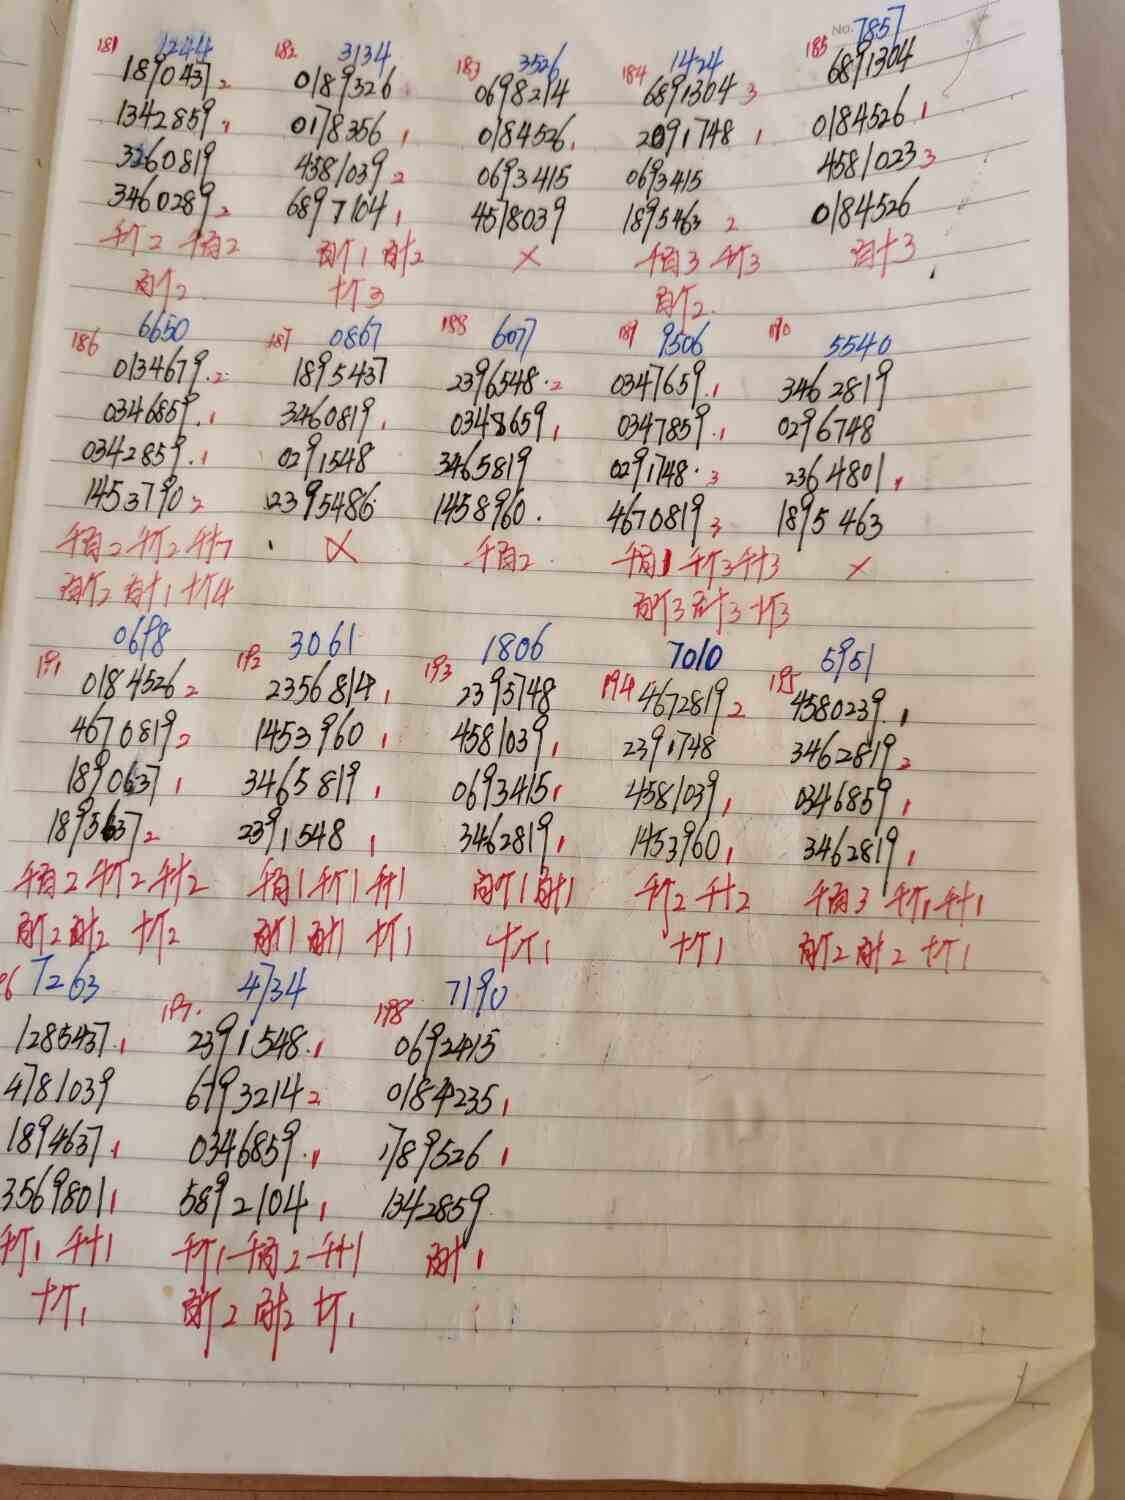 181 1244
1890437 2
1342859 1
3260819
3460289 2
千个2 千百2
百个2
182 3134
0189326
0178356 1
4581039 2
6897104 1
百个1 百十2
十个3
183 3526
0698214
0184526 1
0693415
4578039
×
184 1424
6891304 3
2091748 1
0693415
1895463 2
千百3 千个3
百个2
No. 7857
185
6891304
0184526 1
4581023 3
0184526
百十3
186 6650
0134679.2
0346859.1
0342859.1
1453790 2
千百2 千个2 千十
百个2 百十1 十个4
187 0867
1895437
3460819 1
0291548
2395486
×
188 6077
2396548.2
0348659 1
3465819
1458960.
千百2
189 9506
0347659.1
0347859.1
0291748.3
4670819 3
千百1 千个3 千十3
百个3 百十3 十个3
190 5540
3462819
0296748
2364801 1
1895463
×
191 0698
0184526 2
4670819 2
1890637 1
1895637 2
千百2 千个2 千十2
百个2 百十2 十个2
192 3061
2356814 1
1453960 1
3465819 1
2391548 1
千百1 千个1 千十1
百个1 百十1 十个1
193 1806
2395748
4581039 1
0693415 1
3462819 1
百个1 百十1
十个1
194 7010
4672819 2
2391748
4581039 1
1453960 1
千个2 千十2
十个1
195 5951
4580239 1
3462819 2
0346859 1
3462819 1
千百3 千个1 千十1
百个2 百十2 十个1
96 7263
1285437.1
4781039
1894637 1
3569801 1
千个1 千十1
十个1
197. 4734
2391548.1
6793214 2
0346859.1
5892104 1
千个1 千百2 千十1
百个2 百十2 十个1
198 7190
0692415
0184235 1
1789526 1
1342859
百十1